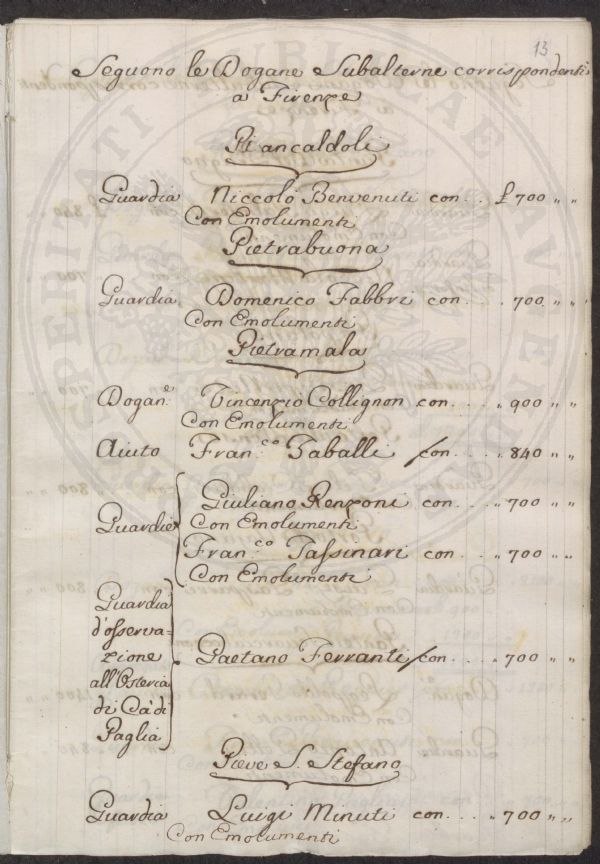 13
Seguono le Dogane Subalterne corrispondenti
a Firenze
Piancaldoli
Guardia Niccolò Benvenuti con.. £ 700 " "
Con Emolumenti
Pietrabuona
Guardia Domenico Fabbri con.... 700 " "
Con Emolumenti
Pietramala
Dogan.e Vincenzio Collignon con.... " 900 " "
Con Emolumenti
Aiuto Fran.co Taballi con.... " 840 " "
Guardie Giuliano Renzoni con.... " 700 " "
Con Emolumenti
Fran.co Tassinari con.... " 700 " "
Con Emolumenti
Guardia
d'osserva-
zione
all'Osteria
di Cà di
Paglia
Gaetano Ferranti con.... " 700 " "
Pieve S. Stefano
Guardia Luigi Minuti con.... " 700 " "
Con Emolumenti